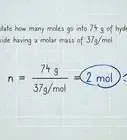 late how many moles go into 74 g of hydr
xide having a molar mass of 37g/mol
n = 74 g / 37g/mol = 2 mol